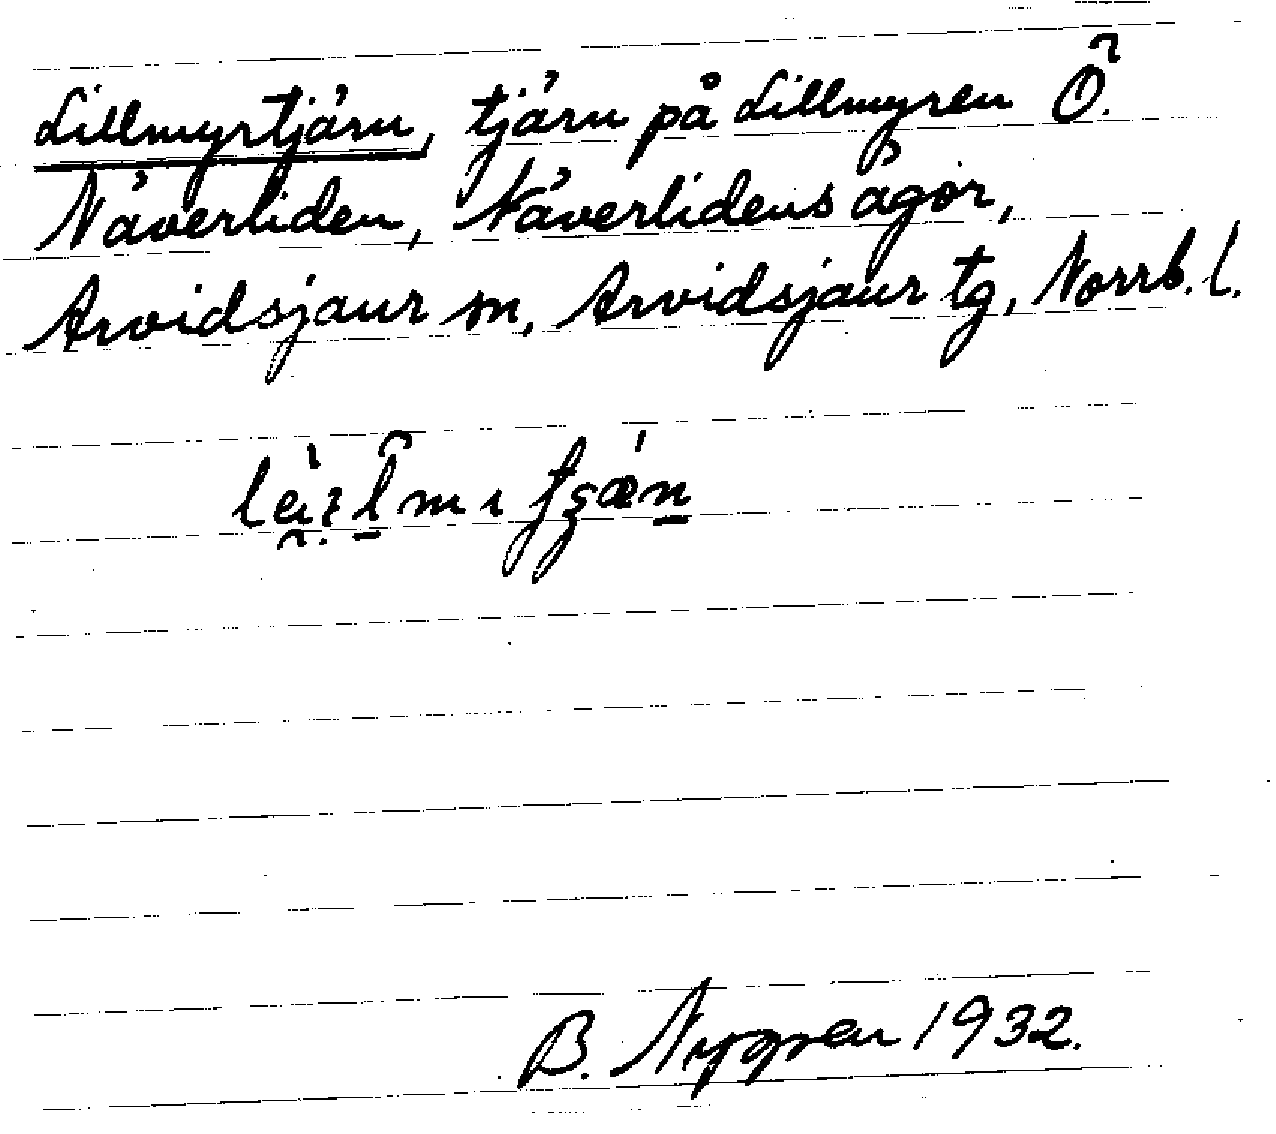 Lillmyrtjärn, tjärn på Lillmyren Ö.
Näverliden, Näverlidens ägor,
Arvidsjaur sn, Arvidsjaur tg, Norrb. l.
B. Nygren 1932.